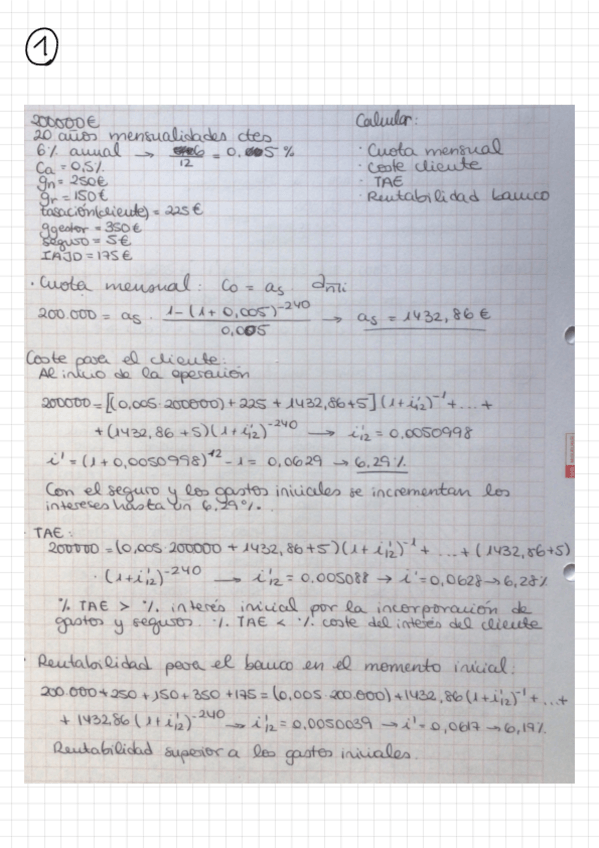 1
200000€
20 años mensualidades ctes
6% anual → 6/12 = 0,005 %
Ca = 0,5%
gn = 250€
gr = 150€
tasación(cliente) = 225 €
ggestor = 350€
seguro = 5€
IAJD = 175€
Calcular:
· Cuota mensual
· Coste cliente
· TAE
· Rentabilidad banco
· Cuota mensual: Co = as · an¬i
200.000 = as · 1-(1+0,005)^-240 / 0,005 → as = 1432,86 €
Coste para el cliente:
Al inicio de la operación
200000=[(0,005·200000)+225+1432,86+5](1+i'12)^-1+...+
+(1432,86+5)(1+i'12)^-240 → i'12 = 0,0050998
i' = (1+0,0050998)^12 -1 = 0,0629 → 6,29%
Con el seguro y los gastos iniciales se incrementan los
intereses hasta un 6,29%.
· TAE:
200000=(0,005·200000+1432,86+5)(1+i'12)^-1+...+(1432,86+5)
·(1+i'12)^-240 → i'12 = 0,005088 → i' = 0,0628 → 6,28%
% TAE > % interés inicial por la incorporación de
gastos y seguros. % TAE < % coste del interés del cliente
· Rentabilidad para el banco en el momento inicial:
200.000+250+150+350+175=(0,005·200.000)+1432,86(1+i'12)^-1+...+
+1432,86(1+i'12)^-240 → i'12 = 0,0050039 → i' = 0,0617 → 6,17%
Rentabilidad superior a los gastos iniciales.